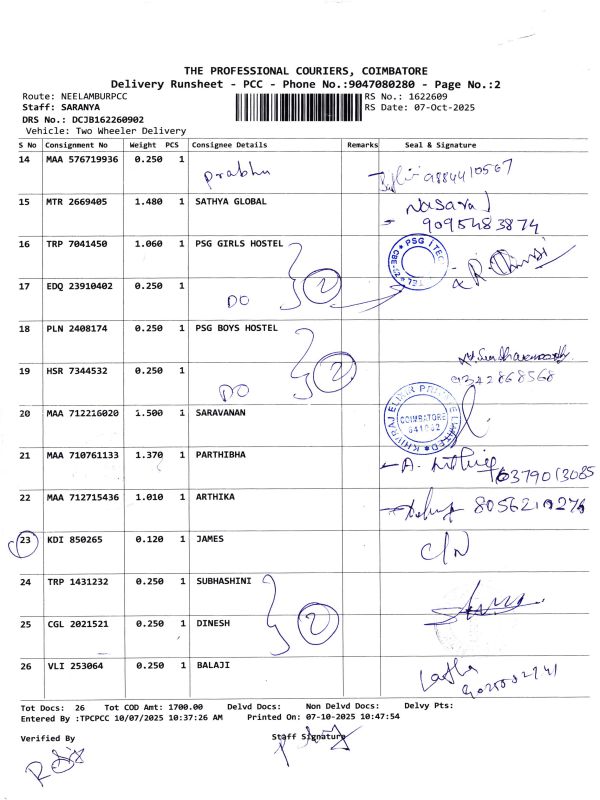 THE PROFESSIONAL COURIERS, COIMBATORE
Delivery Runsheet - PCC - Phone No.:9047080280 - Page No.:2
Route: NEELAMBURPCC RS No.: 1622609
Staff: SARANYA RS Date: 07-Oct-2025
DRS No.: DCJB162260902
Vehicle: Two Wheeler Delivery
S No Consignment No Weight PCS Consignee Details Remarks Seal & Signature
14 MAA 576719936 0.250 1 prabhu 9884410567
15 MTR 2669405 1.480 1 SATHYA GLOBAL
9095483874
16 TRP 7041450 1.060 1 PSG GIRLS HOSTEL
17 EDQ 23910402 0.250 1 DO 2
18 PLN 2408174 0.250 1 PSG BOYS HOSTEL
19 HSR 7344532 0.250 1 DO 2 9342868568
20 MAA 712216020 1.500 1 SARAVANAN COIMBATORE
21 MAA 710761133 1.370 1 PARTHIBHA
22 MAA 712715436 1.010 1 ARTHIKA
23 KDI 850265 0.120 1 JAMES C/N
24 TRP 1431232 0.250 1 SUBHASHINI
25 CGL 2021521 0.250 1 DINESH 2
26 VLI 253064 0.250 1 BALAJI
Tot Docs: 26 Tot COD Amt: 1700.00 Delvd Docs: Non Delvd Docs: Delvy Pts:
Entered By :TPCPCC 10/07/2025 10:37:26 AM Printed On: 07-10-2025 10:47:54
Verified By Staff Signature